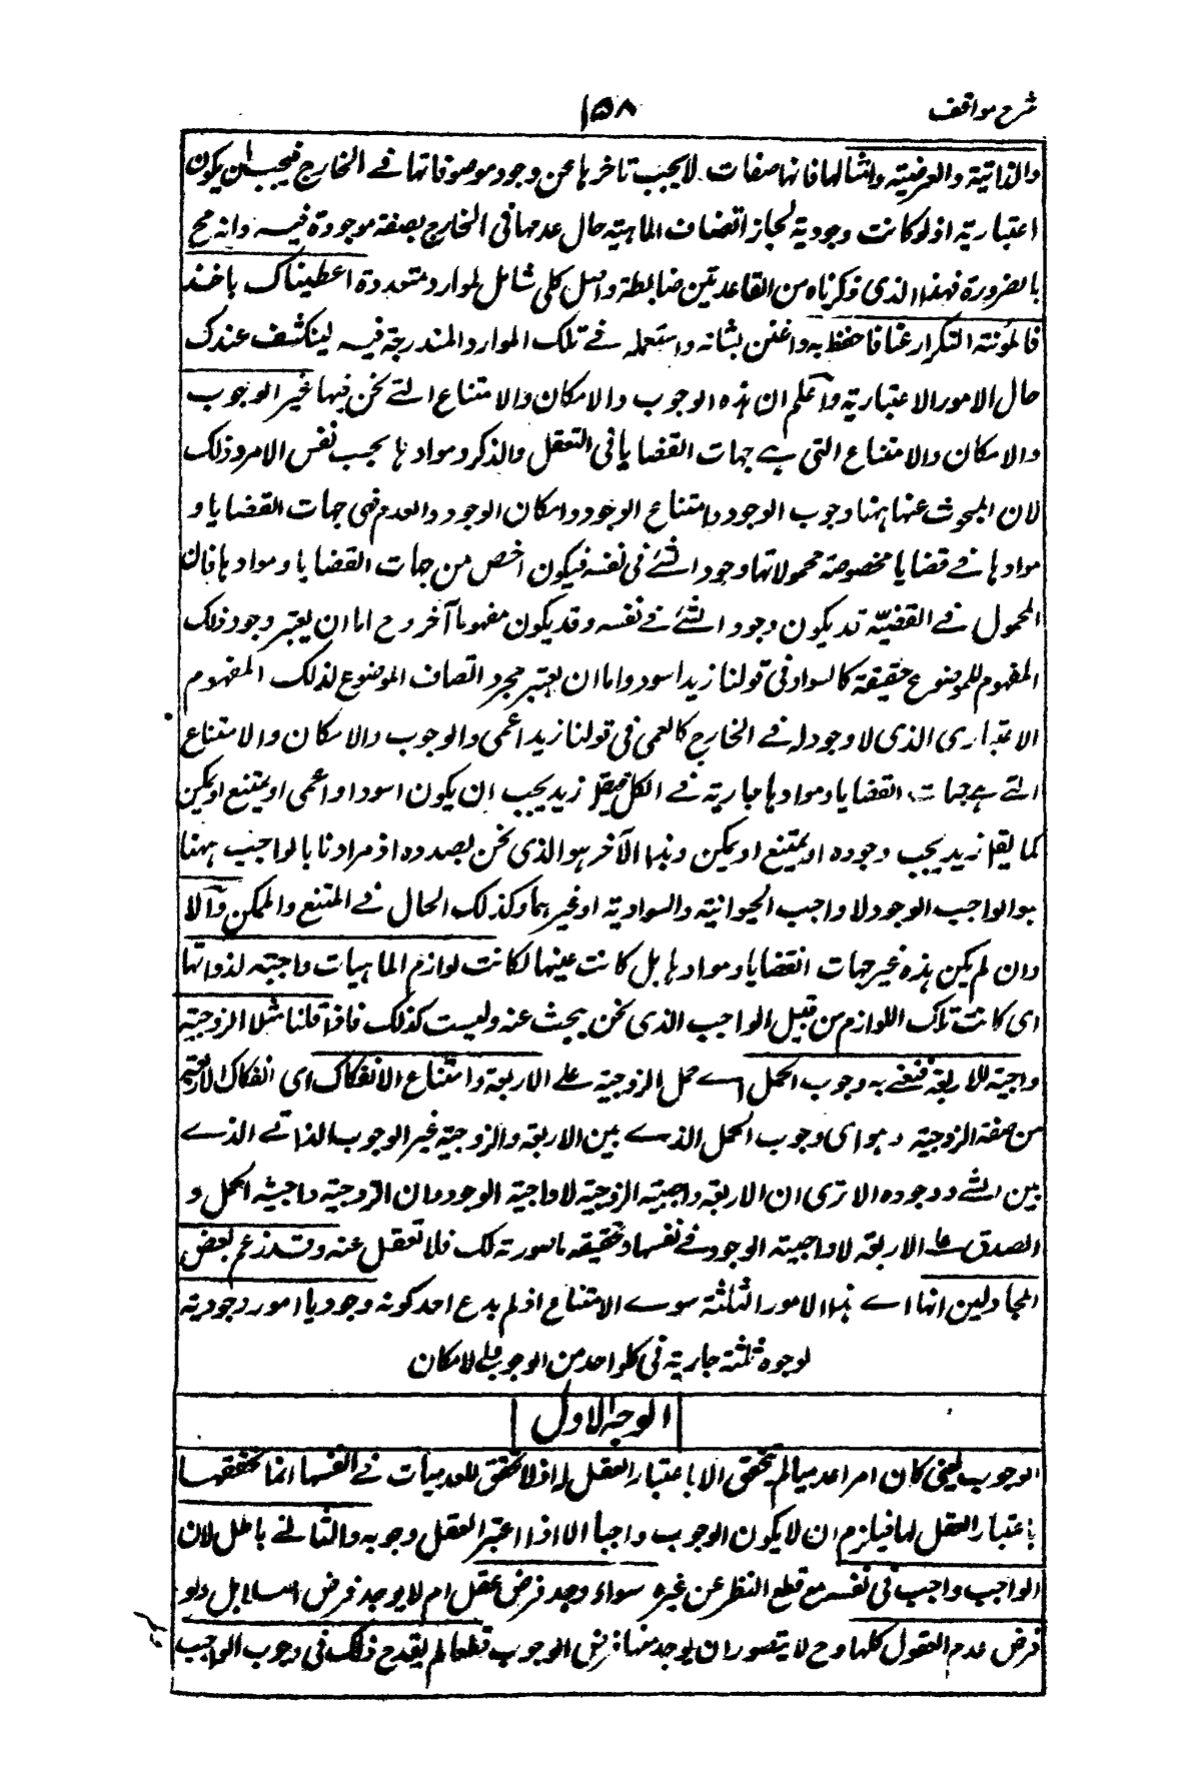 شرح مواقف
١٥٨
والذاتية والعرضية وامثالها فانها صفات لا يجب تاخرها عن وجود موصوفاتها في الخارج فيجب ان يكون
اعتبارية اذ لو كانت وجودية لجاز اتصاف الماهية حال عدمها في الخارج بصفة موجودة فيه وانه مح
بالضرورة فهذا الذى ذكرناه من القاعدتين ضابطة واصل كلى شامل لموارد متعددة اعطيناك باخذ
فالمؤنة التكرار عنا فاحفظ به واغتن بشانه واستعمله في تلك الموارد المندرجة فيه لينكشف عندك
حال الامور الاعتبارية واعلم ان هذه الوجوب والامكان والامتناع التے نحن فيها غير الوجوب
والامكان والامتناع التى هے جهات القضايا فى التعقل والذكر وموادها بحسب نفس الامر وذلك
لان المبحوث عنها ههنا وجوب الوجود وامتناع الوجود وامكان الوجود والعدم فهى جهات القضايا و
موادها في قضايا مخصوصة محمولاتها وجود الشئ فى نفسه فيكون اخص من جهات القضايا وموادها فان
المحمول في القضيّة قد يكون وجود الشئ في نفسه وقد يكون مفهوما آخر وح اما ان يعتبر وجود ذلك
المفهوم للموضوع حقيقة كالسواد فى قولنا زيد اسود واما ان يعتبر مجرد اتصاف الموضوع لذلك المفهوم
الاعتبارى الذى لا وجود له في الخارج كالعمى فى قولنا زيد اعمى والوجوب والامكان والامتناع
التے هے جهات القضايا وموادها جارية في الكل فيقل زيد يجب ان يكون اسود او اعمى او يمتنع او يمكن
كما يقا زيد يجب وجوده او يمتنع او يمكن وهذا الآخر هو الذى نحن بصدده اذ مرادنا بالواجب ههنا
هو الواجب الوجود لا واجب الحيوانية والسوادية او غيرهما وكذلك الحال في الممتنع والممكن والا
وان لم يكن هذه غير جهات القضايا وموادها بل كانت عينها لكانت لوازم الماهيات واجبة لذواتها
اى كانت تلك اللوازم من قبيل الواجب الذى نحن نبحث عنه وليست كذلك فاذا قلنا مثلا الزوجية
واجبة للاربعة فنعنے به وجوب الحمل اے حمل الزوجية على الاربعة وامتناع الانفكاك اى انفكاك الاربعة
من صفة الزوجية وهو اى وجوب الحمل الذے بين الاربعة والزوجية غير الوجوب الذاتے الذے
بين الشئ ووجوده الا ترى ان الاربعة واجبة الزوجية لا واجبة الوجود وان الزوجية واجبة الحمل و
الصدق على الاربعة لا واجبة الوجود في نفسها وتحقيقه ما صورته لك فلا تغفل عنه وقد زعم بعض
المجادلين انها اے هذه الامور الثلثة سوے الامتناع اذ لم يدع احد كونه وجوديا امور وجودية
لوجوه ثلثة جارية فى كلواحد من الوجوب والامكان
الوجه الاول
الوجوب يعنى كان امرا عدميا لم يتحقق الا باعتبار العقل له اذ لا تحقق للعدميات في انفسها انما تحققها
باعتبار العقل لها فيلزم ان لا يكون الوجوب واجبا الا اذا اعتبر العقل وجوبه والتالے باطل لان
الواجب واجب فى نفسه مع قطع النظر عن غيره سواء وجد فرض عقل ام لا يوجد فرض اصلا بل ولو
فرض عدم العقول كلها وح لا يتصور ان يوجد منها فرض الوجوب قطعا لم يقدح ذلك فى وجوب الواجب